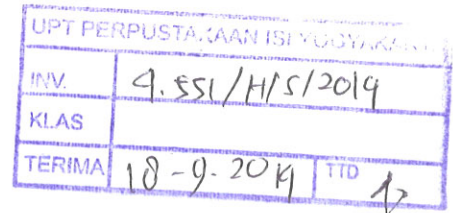 UPT PERPUSTAKAAN ISI YOGYAKARTA
INV. 9.551/H/S/2019
KLAS
TERIMA 18-9-2019 TTD